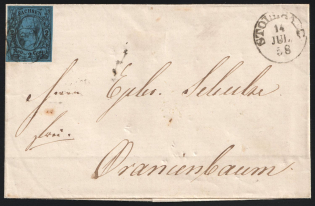 SACHSEN
STOLPEN
14
JUL
58
Herrn Ephr. Schulze
frei.
Oranienbaum.